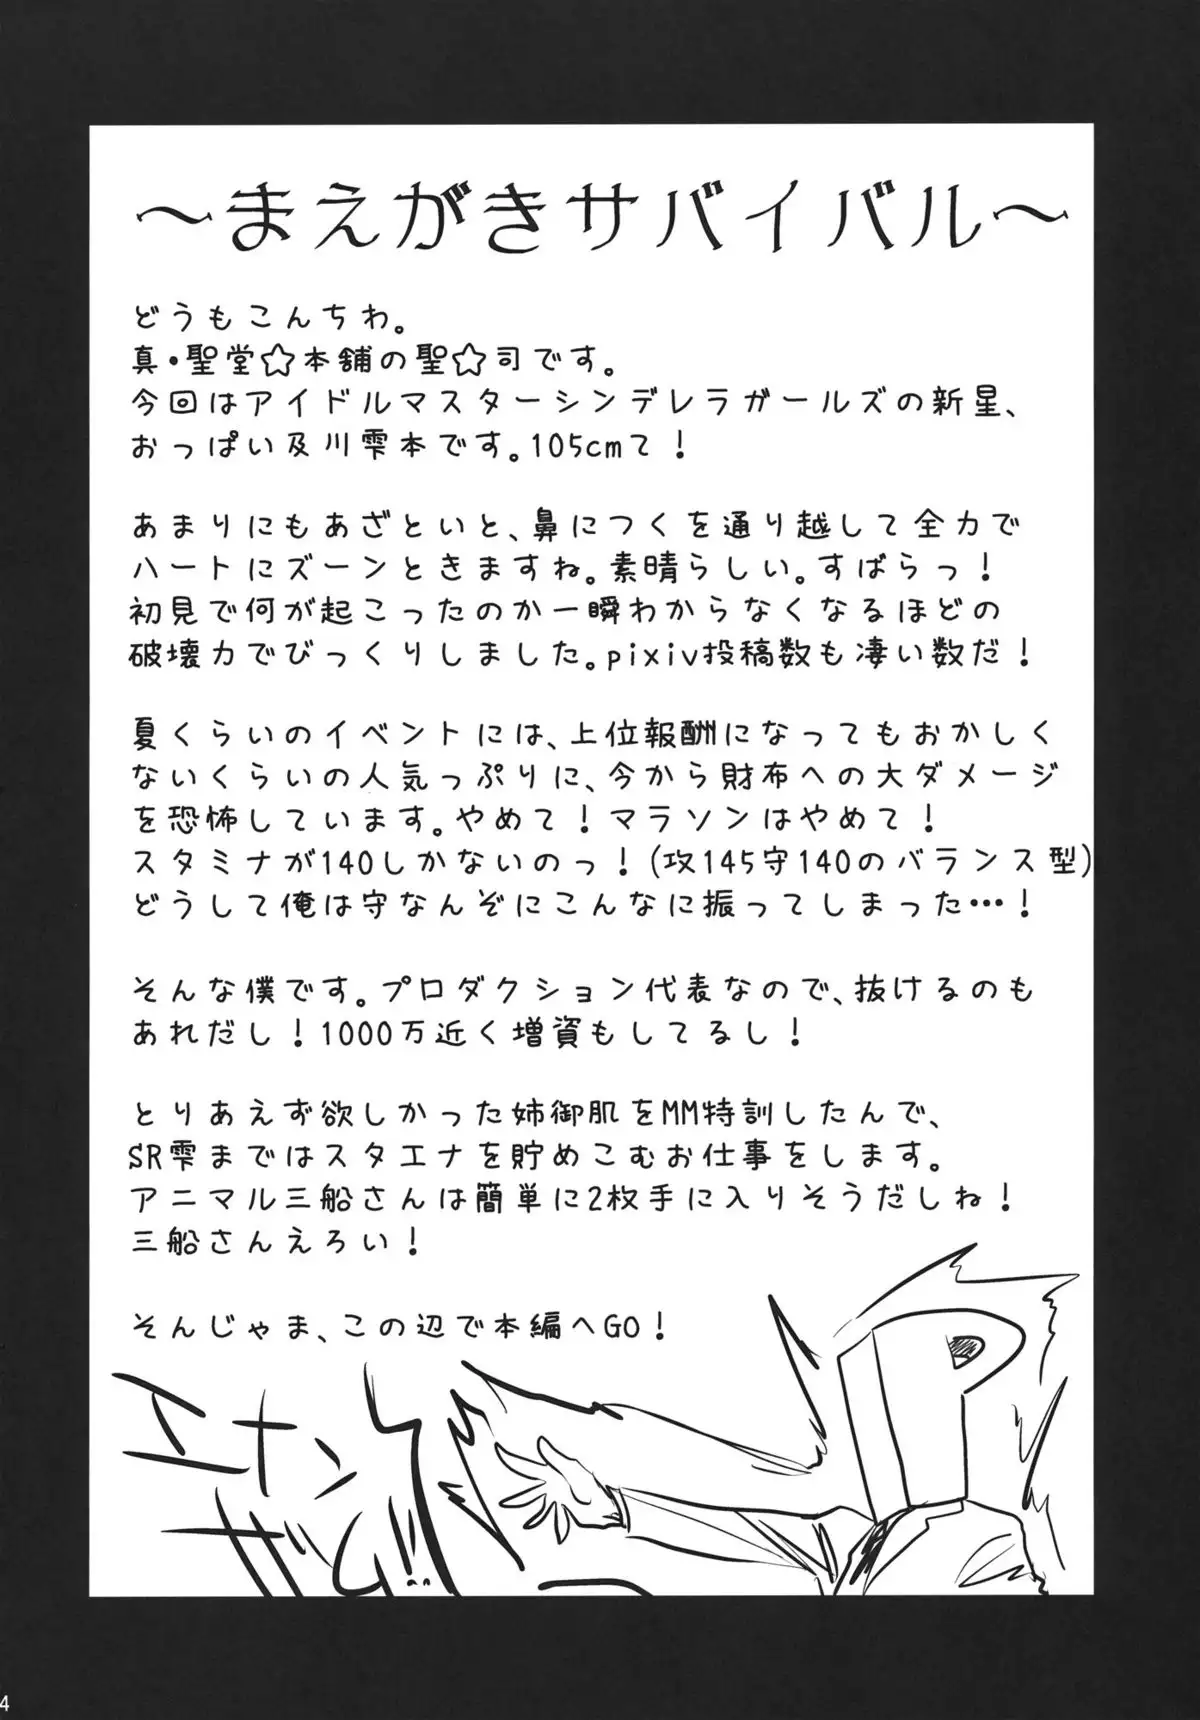 ～まえがきサバイバル～
どうもこんちわ。
真・聖堂☆本舗の聖☆司です。
今回はアイドルマスターシンデレラガールズの新星、
おっぱい及川雫本です。105cmて！
あまりにもあざといと、鼻につくを通り越して全力で
ハートにズーンときますね。素晴らしい。すばらっ！
初見で何が起こったのか一瞬わからなくなるほどの
破壊力でびっくりしました。pixiv投稿数も凄い数だ！
夏くらいのイベントには、上位報酬になってもおかしく
ないくらいの人気っぷりに、今から財布への大ダメージ
を恐怖しています。やめて！マラソンはやめて！
スタミナが140しかないのっ！(攻145守140のバランス型)
どうして俺は守なんぞにこんなに振ってしまった…！
そんな僕です。プロダクション代表なので、抜けるのも
あれだし！1000万近く増資もしてるし！
とりあえず欲しかった姉御肌をMM特訓したんで、
SR雫まではスタエナを貯めこむお仕事をします。
アニマル三船さんは簡単に2枚手に入りそうだしね！
三船さんえろい！
そんじゃま、この辺で本編へGO！
エナジー
4